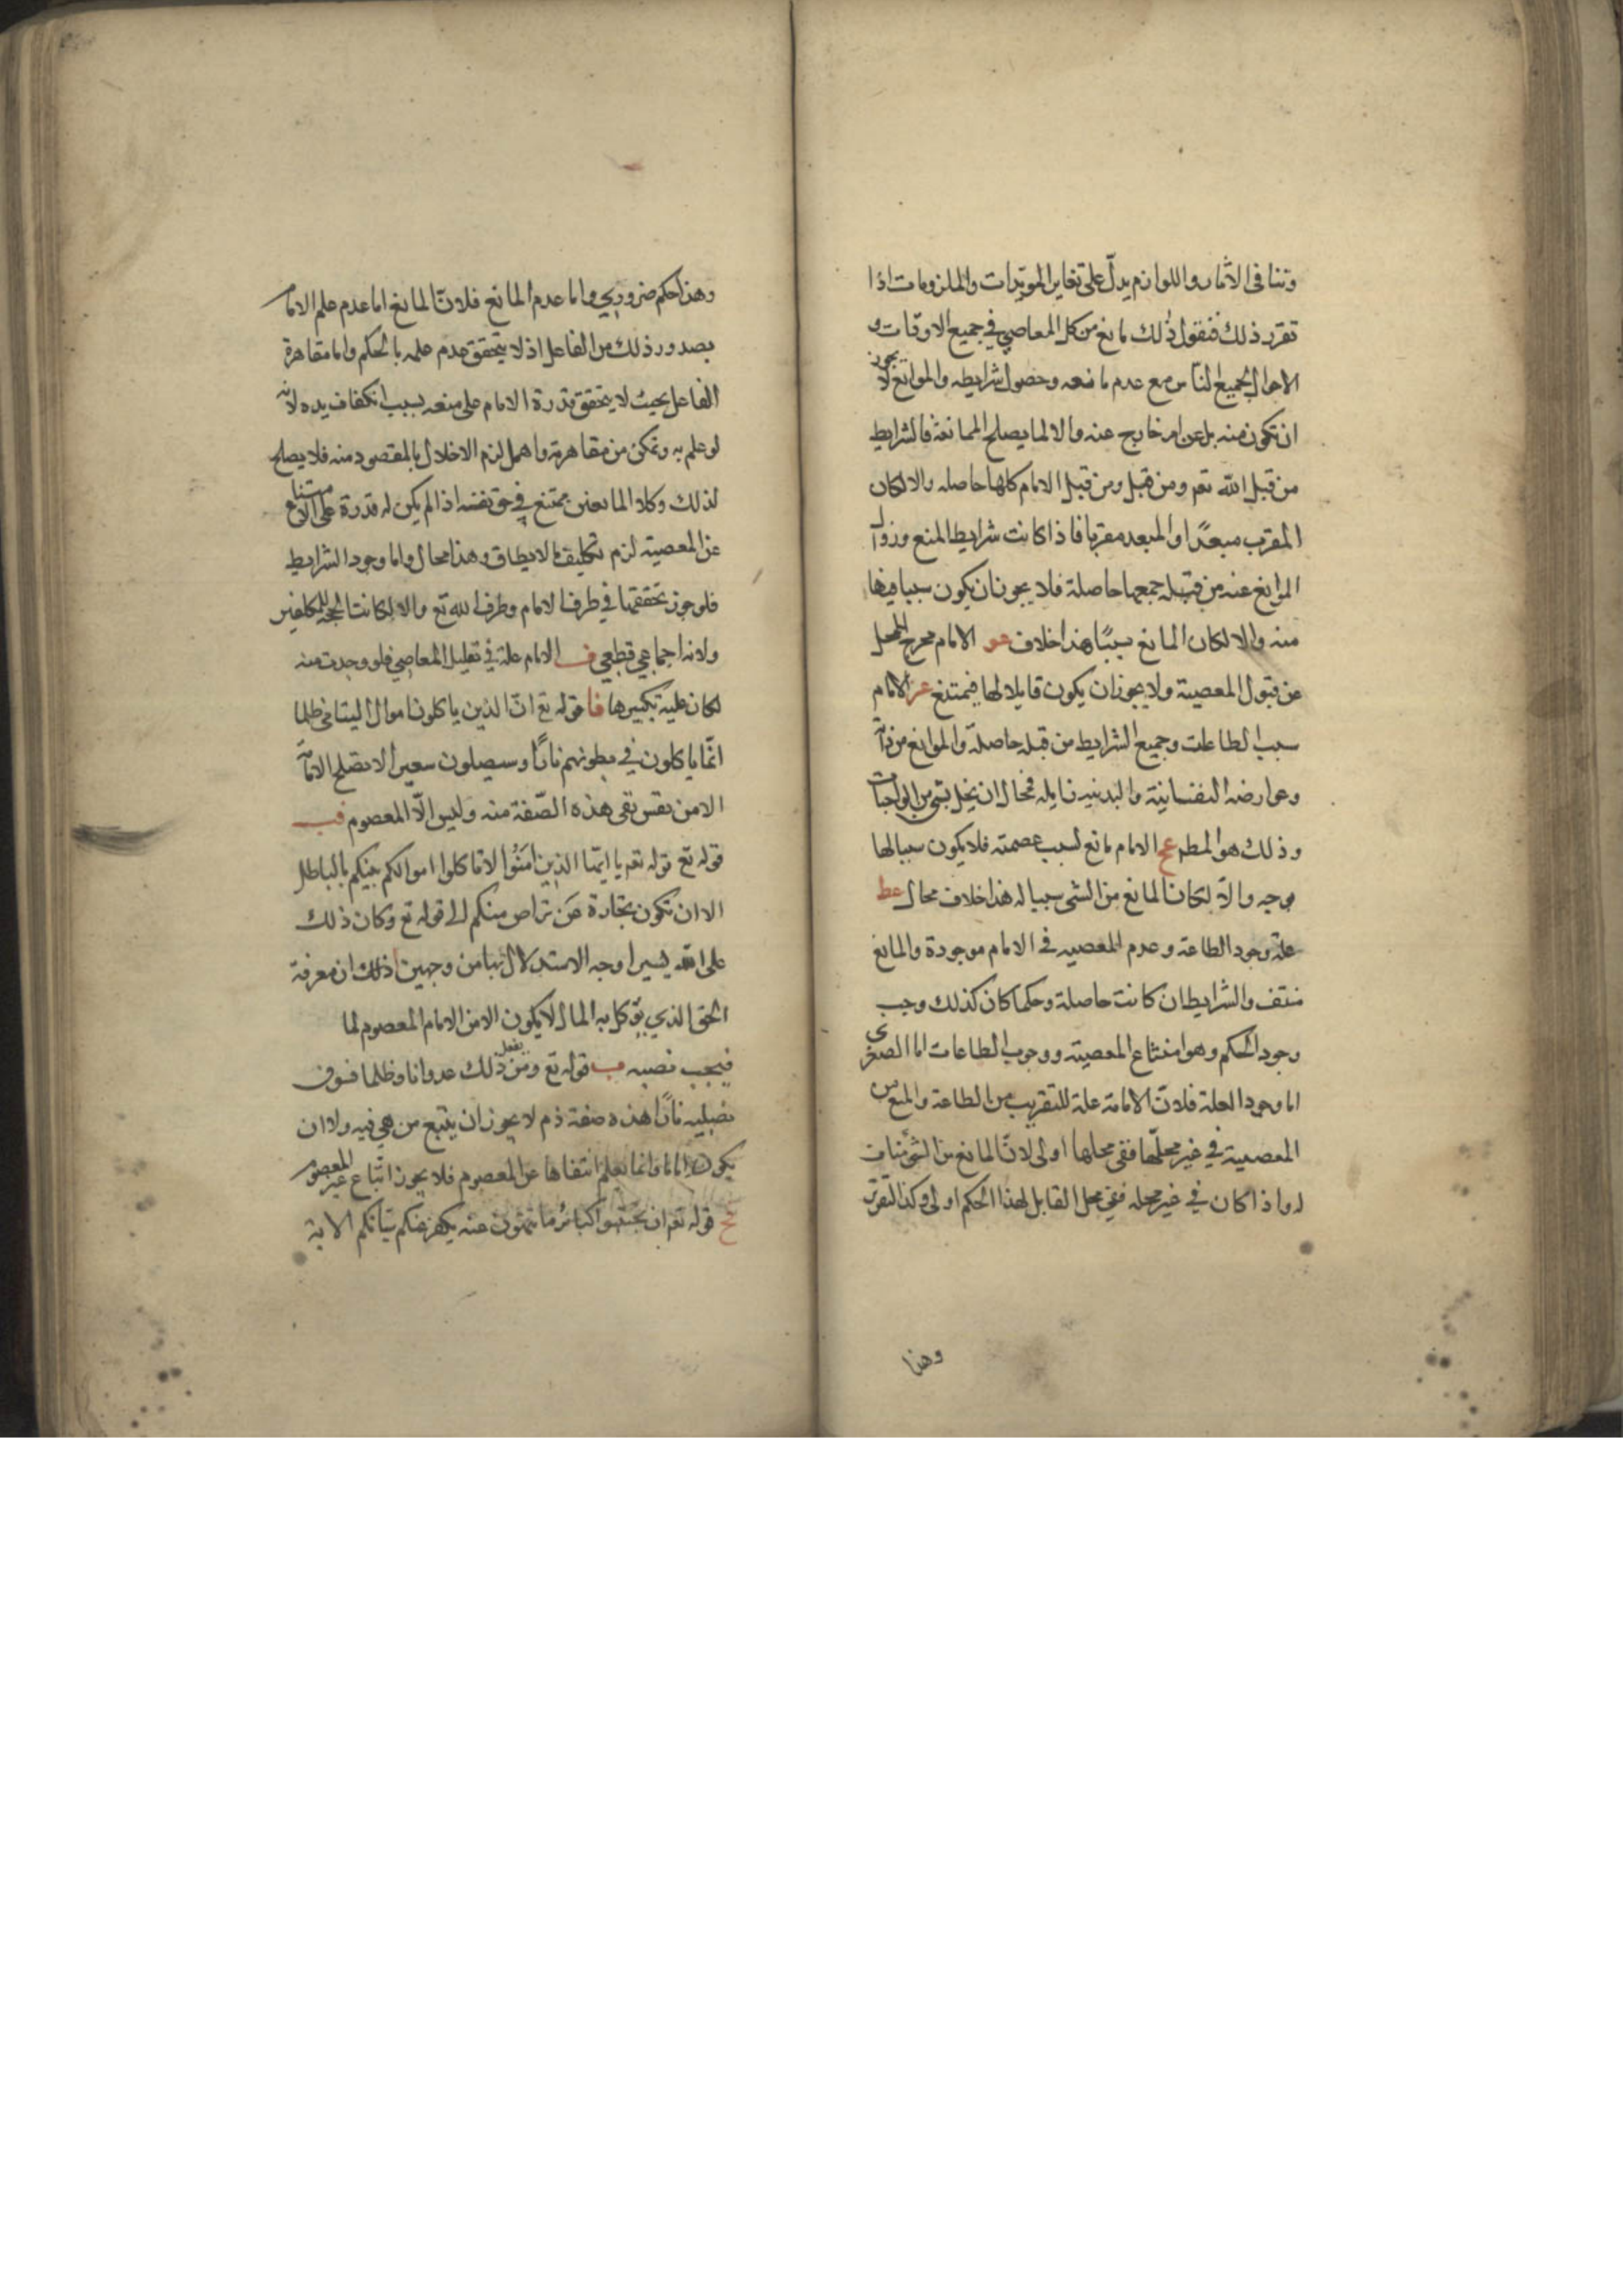 وتنافى الاثار واللوازم يدلّ على تغاير الموثرات والملزومات اذا
تقرر ذلك فنقول ذلك مانع من كل المعاصي في جميع الاوقات و
الاحوال لجميع الناس مع عدم مانعه وحصول شرايطه والموانع لا يجوز
ان تكون منه بل عن امر خارج عنه والا لما يصلح للممانعة فالشرايط
من قبل الله تعم ومن قبل ومن قبل الامام كلها حاصله والا لكان
المقرب مبعدًا او المبعد مقربا فاذا كانت شرايط المنع وزوال
الموانع عنه من قبله جمعها حاصلة فلا يجوز ان يكون سببا فيها
منه والا لكان المانع سببًا هذا خلاف عو الامام مخرج للمحل
عن قبول المعصية ولا يجوز ان يكون قابلا لها فيمتنع عز الامام
سبب الطاعات وجميع الشرايط من قبله حاصلة والموانع من ذاته
وعوارضه النفسانية والبدنيه زايله فمحال ان يخل بشي من الواجبات
وذلك هو المطم عح الامام مانع لسبب عصمته فلا يكون سببا لها
موجبه والا لكان المانع من الشي سببا له هذا خلاف محال عط
علة وجود الطاعة وعدم المعصيه في الامام موجودة والمانع
منتف والشرايط ان كانت حاصلة وحكما كان كذلك وجب
وجود الحكم وهو امتناع المعصية ووجوب الطاعات اما الصغرى
اما وجود العلة فلانّ الامامة علة للتقريب من الطاعة والمنع من
المعصية في غير محلّها ففي محلها اولى لانّ المانع من الشيء مناف
له واذا كان في غير محله ففي محل القابل لهذا الحكم اولى وكذا التقرب
وهذا
وهذا حكم ضروري واما عدم المانع فلانّ المانع اما عدم علم الامام
بصدور ذلك من الفاعل اذ لا يتحقق عدم علمه بالحكم واما مقاهرة
الفاعل بحيث لا يتحقق قدرة الامام على منعه بسبب انكفاف يده لانه
لو علم به وتمكن من مقاهرته واهمل لزم الاخلال بالمقصود منه فلا يصلح
لذلك وكلا المانعين يمتنع في حق نفسه اذ لم يكن له قدرة على الامتناع
عن المعصية لزم تكليف ما لا يطاق وهذا محال واما وجود الشرايط
فلوجوب تحققها في طرف الامام وطرف الله تع والا لكانت الحجة للمكلفين
ولانه اجماعي قطعي ف الامام علة في تقليل المعاصي فلو وجدت منه
لكان علية تكثيرها فا قوله تع انّ الذين ياكلون اموال اليتامى ظلما
انّما ياكلون في بطونهم نارًا وسيصلون سعيرا لا تصلح الامامة
الا من نفس تقى هذه الصّفة منه وليس الّا المعصوم فب
قوله تع قوله تعم يا ايها الذين امَنُوا لا تاكلوا اموالكم بينكم بالباطل
الا ان تكون تجارة عَن تراض منكم الى قوله تع وكان ذلك
على الله يسيرا وجه الاستدلال بها من وجهين ا ذلك ان معرفة
الحق الذي يؤكل به المال لا يكون الا من الامام المعصوم لما
فيجب نصبه ب قوله تع ومن يفعل ذلك عدوانا وظلما فسوف
نصليه نارًا هذه صفة ذم لا يجوز ان يتبع من هي فيه ولا ان
يكون اماما وانما نعلم انتفاها عن المعصوم فلا يجوز اتّباع غير المعصوم
فج قوله تعم ان تجتنبوا كبائر ما تنهون عنه نكفر عنكم سيّاتكم الاية